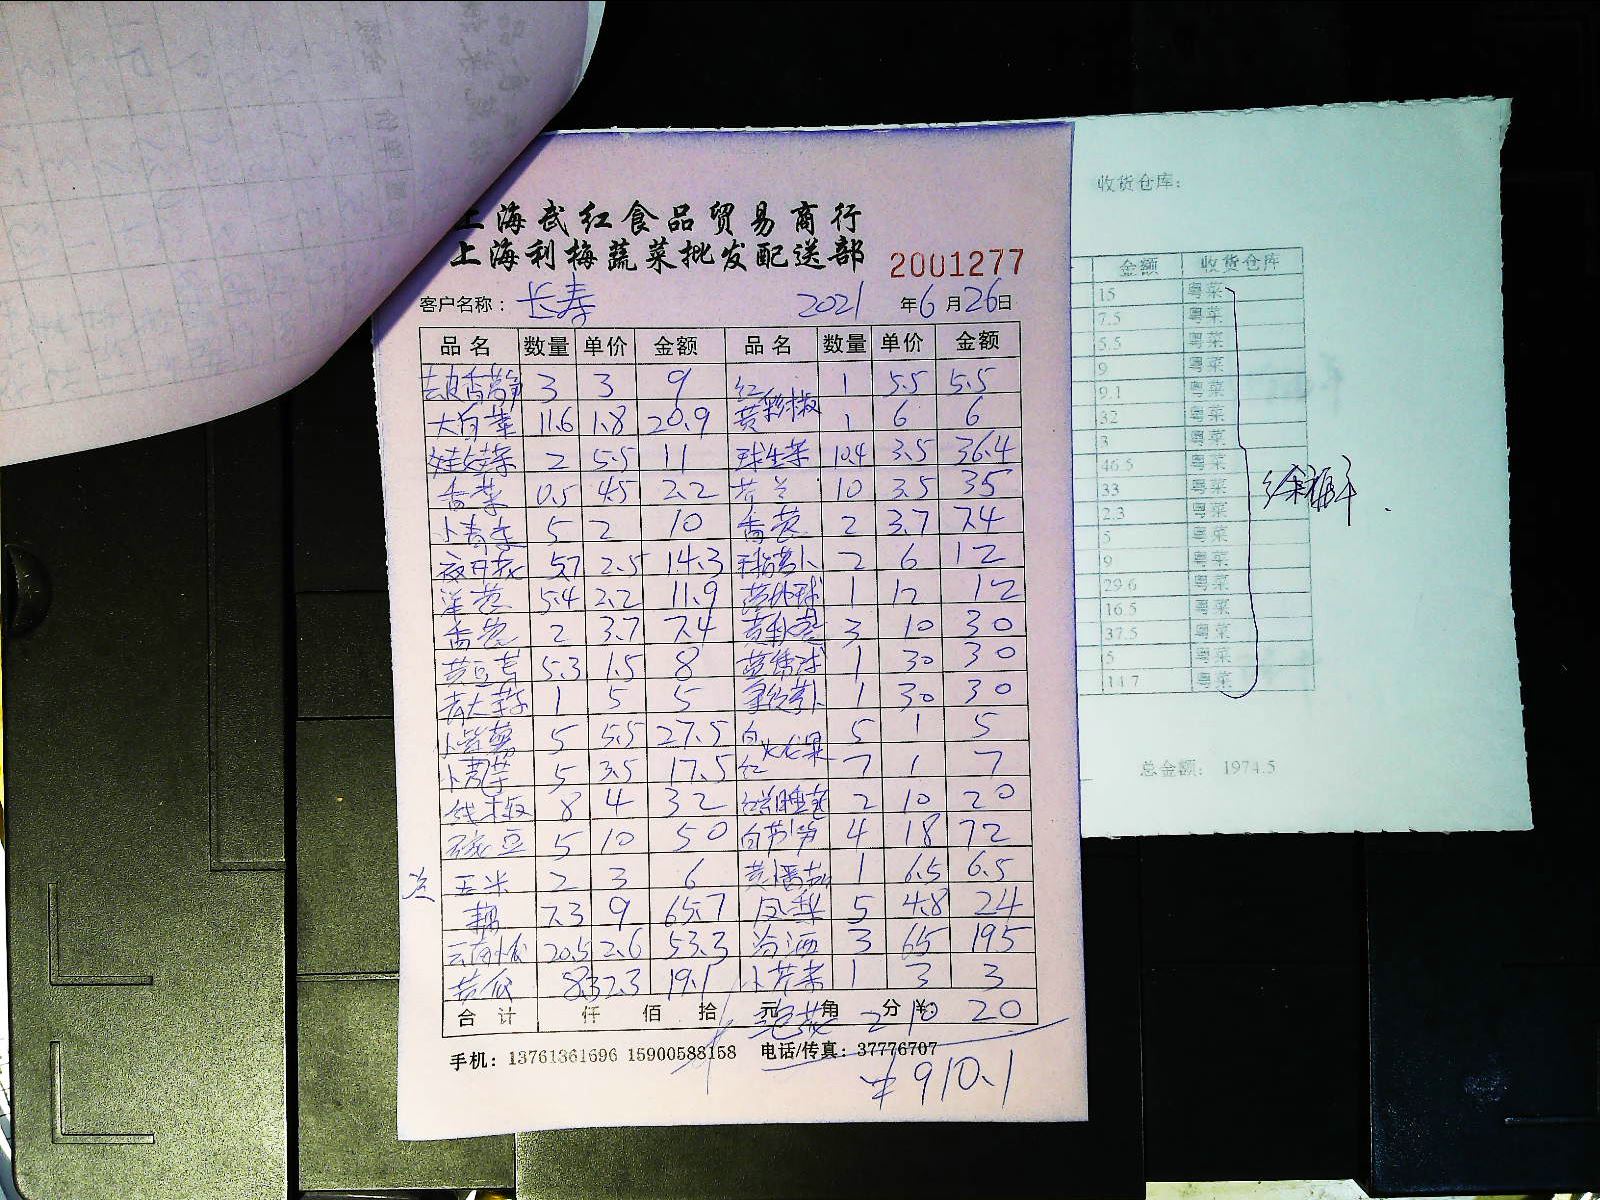 上海武红食品贸易商行
上海利梅蔬菜批发配送部
2001277
客户名称： 长寿 2021 年 6 月 26 日
品名 数量 单价 金额 品名 数量 单价 金额
3 3 9 红 1 5.5 5.5
11.6 1.8 20.9 黄彩椒 1 6 6
娃娃菜 2 5.5 11 球生菜 10.4 3.5 36.4
香菜 0.5 45 2.2 芥兰 10 3.5 35
小青菜 5 2 10 香葱 2 3.7 7.4
夜开花 5.7 2.5 14.3 2 6 12
洋葱 5.4 2.2 11.9 1 12 12
香葱 2 3.7 7.4 3 10 30
黄豆芽 5.3 1.5 8 1 30 30
1 5 5 1 30 30
5 5.5 27.5 白 5 1 5
5 3.5 17.5 红火龙果 7 1 7
线椒 8 4 32 2 10 20
豆 5 10 50 4 18 72
玉米 2 3 6 黄番茄 1 6.5 6.5
藕 7.3 9 65.7 凤梨 5 4.8 24
20.5 2.6 53.3 汾酒 3 65 195
黄瓜 8.3 2.3 19.1 小芹菜 1 3 3
合计 仟 佰 拾 元 角 分 ¥: 2 10 20
手机：13761361696 15900588158 电话/传真：37776707
¥910.1
收货仓库：
金额 收货仓库
15 粤菜
7.5 粤菜
5.5 粤菜
9 粤菜
9.1 粤菜
32 粤菜
3 粤菜
46.5 粤菜
33 粤菜
2.3 粤菜
5 粤菜
9 粤菜
29.6 粤菜
16.5 粤菜
37.5 粤菜
5 粤菜
14.7 粤菜
总金额： 1974.5